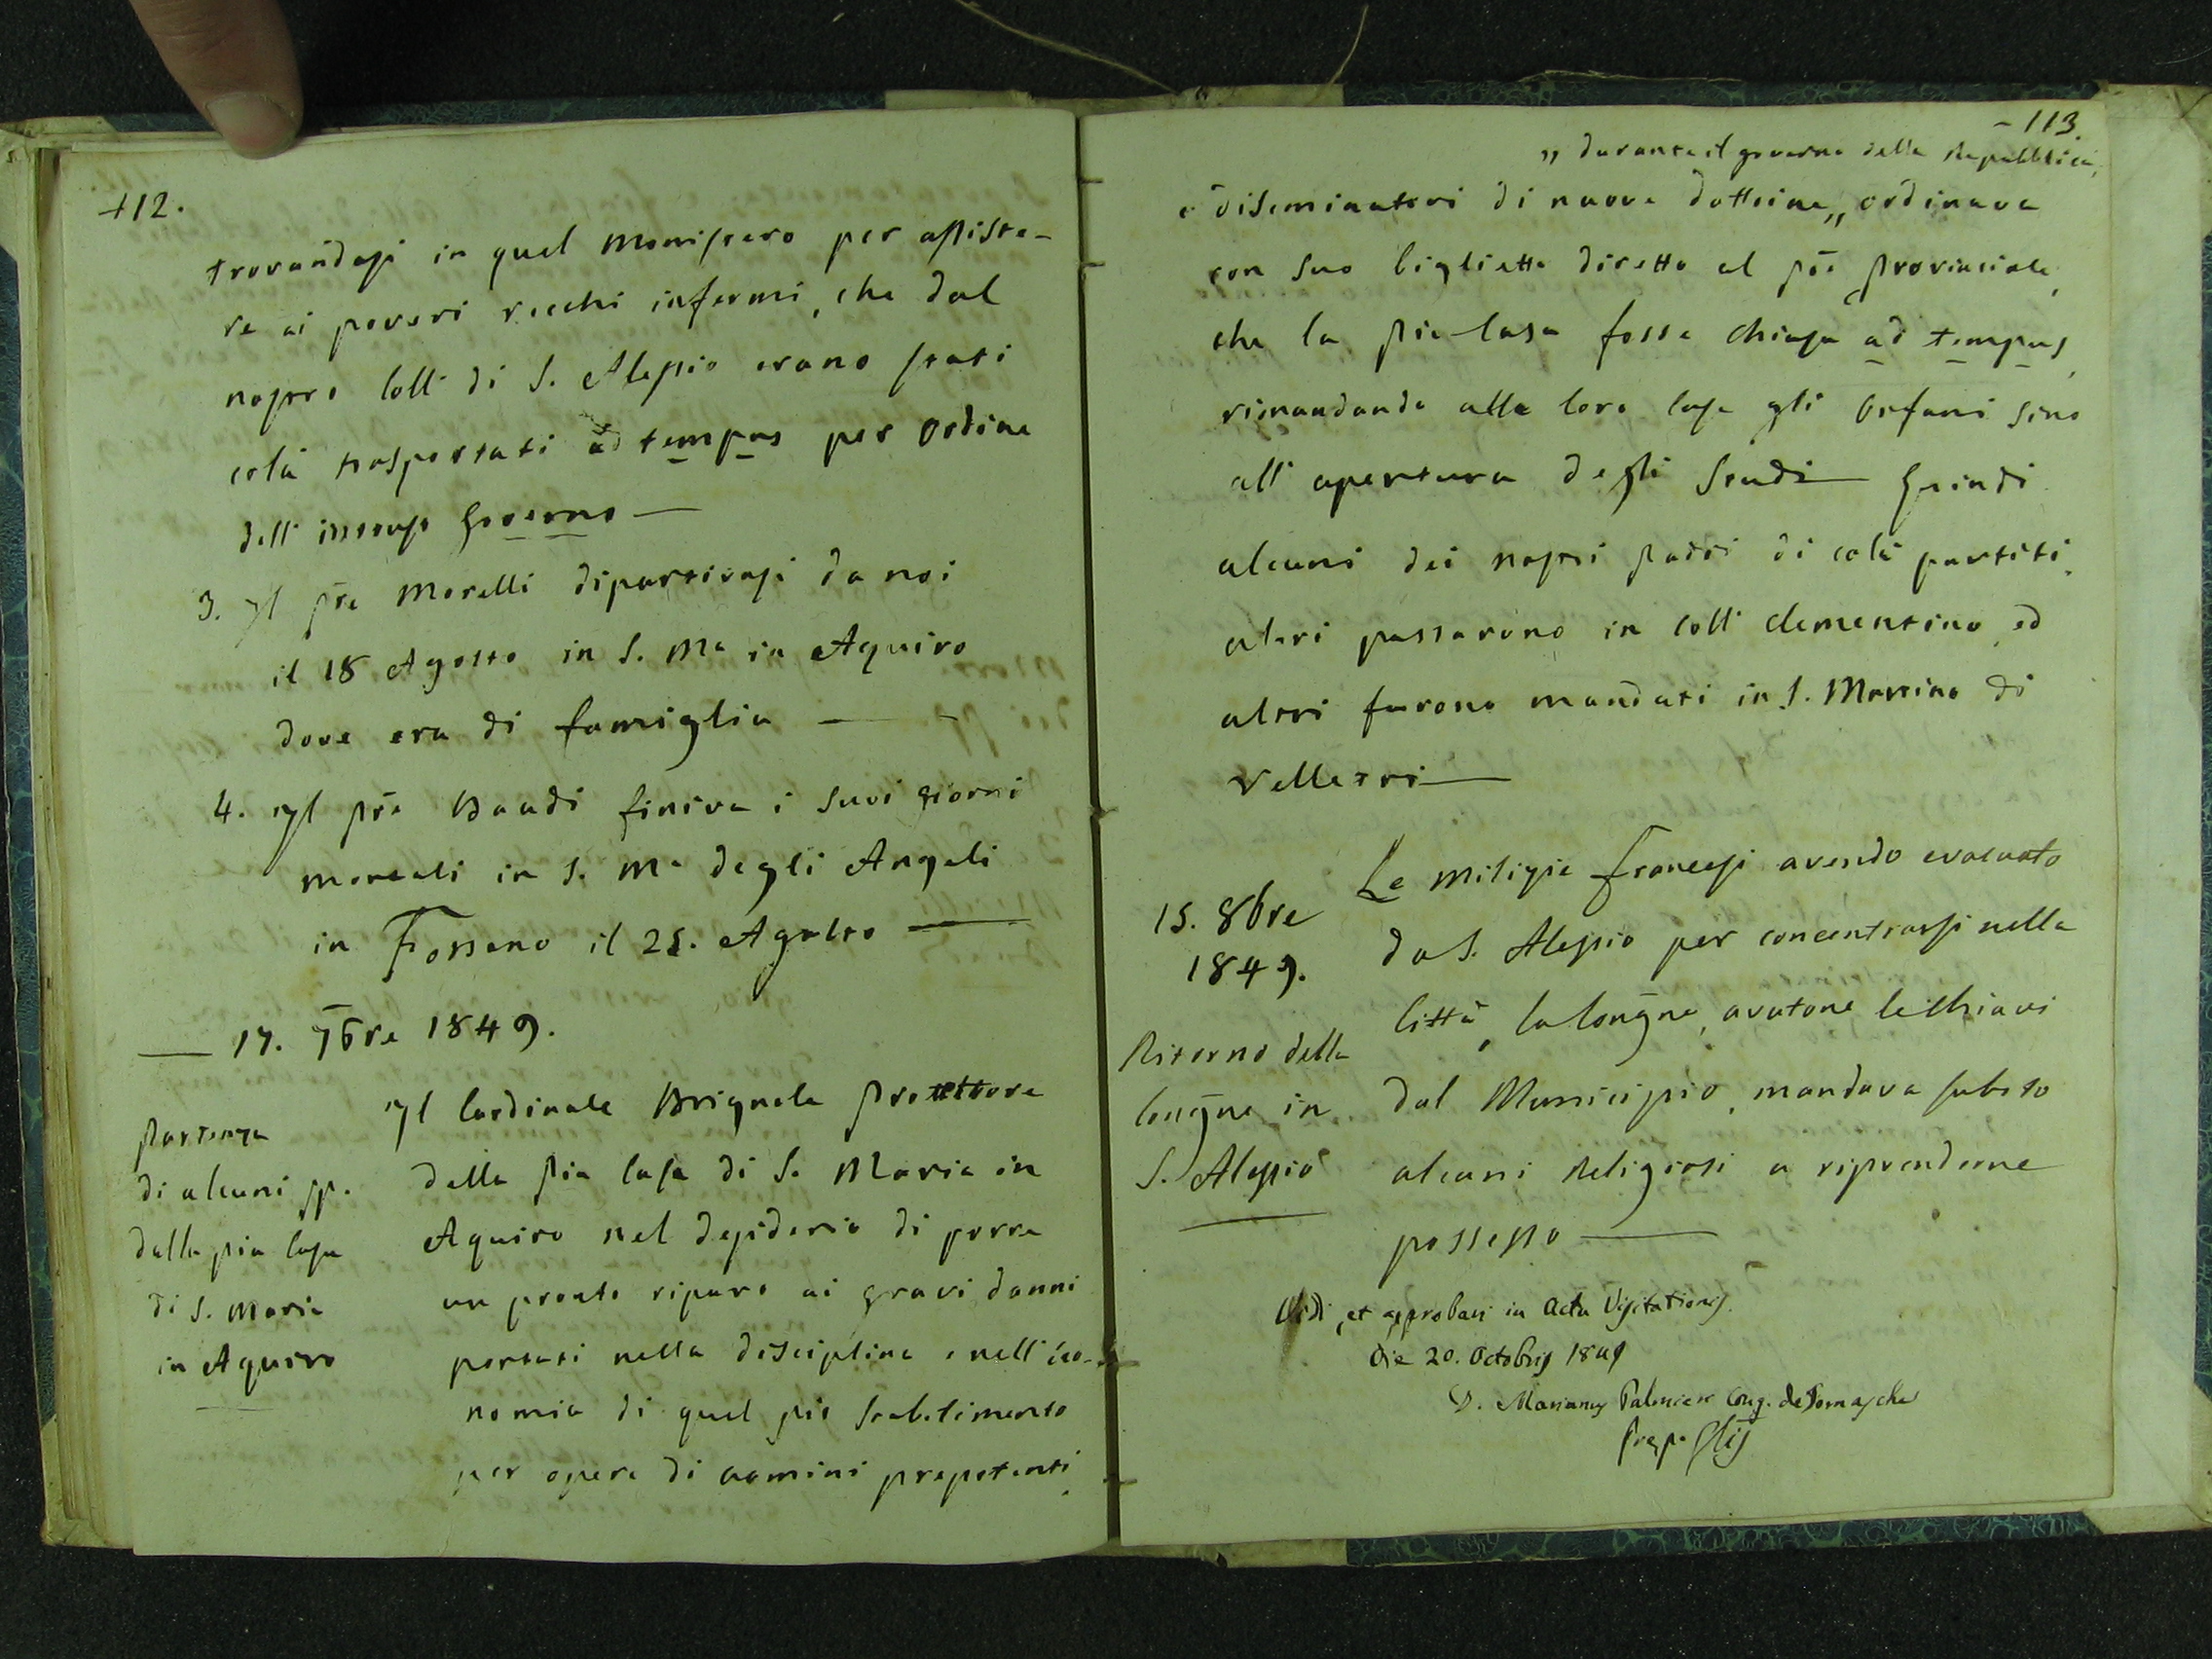 112.
trovandosi in quel Monistero per assiste-
re ai poveri vecchi infermi, che dal
nostro Coll. di S. Alessio erano stati
colà trasportati ad tempus per ordine
dell' intruso Governo —
3. Il p̃re Morelli dipartivasi da noi
il 18 Agosto in S. Ma in Aquiro
dove era di famiglia —
4. Il p̃re Baudi finiva i suoi giorni
mortali in S. Ma degli Angeli
in Fossano il 25. Agosto —
— 17. 7bre 1849.
Partenza
di alcuni pp.
dalla pia Casa
di S. Maria
in Aquiro
Il Cardinale Brignole Protettore
della Pia Casa di S. Maria in
Aquiro nel desiderio di porre
un pronto riparo ai gravi danni
portati nella disciplina e nell' eco-
nomia di quel pio Stabilimento
per opera di uomini prepotenti,
- 113.
„ durante il governo della Repubblica,
e diseminatori di nuove dottrine „ ordinava
con suo biglietto diretto al p̃re Provinciale,
che la Pia Casa fosse chiusa ad tempus,
rimandando alle loro case gli Orfani sino
all' apertura degli Studi — Quindi
alcuni dei nostri Padri di colà partiti,
altri passarono in Coll. Clementino, ed
altri furono mandati in S. Martino di
Velletri —
15. 8bre
1849.
Ritorno della
Congne in
S. Alessio
Le Milizie Francesi avendo evacuato
da S. Alessio per concentrarsi nella
Città, la Congne, avutone le Chiavi
dal Municipio, mandava subito
alcuni Religiosi a riprenderne
possesso —
Vidi, et approbavi in Actu Visitationis.
Die 20. Octobris 1849
D. Marianus Palmieri Cong. de Somascha
Prep. Glis